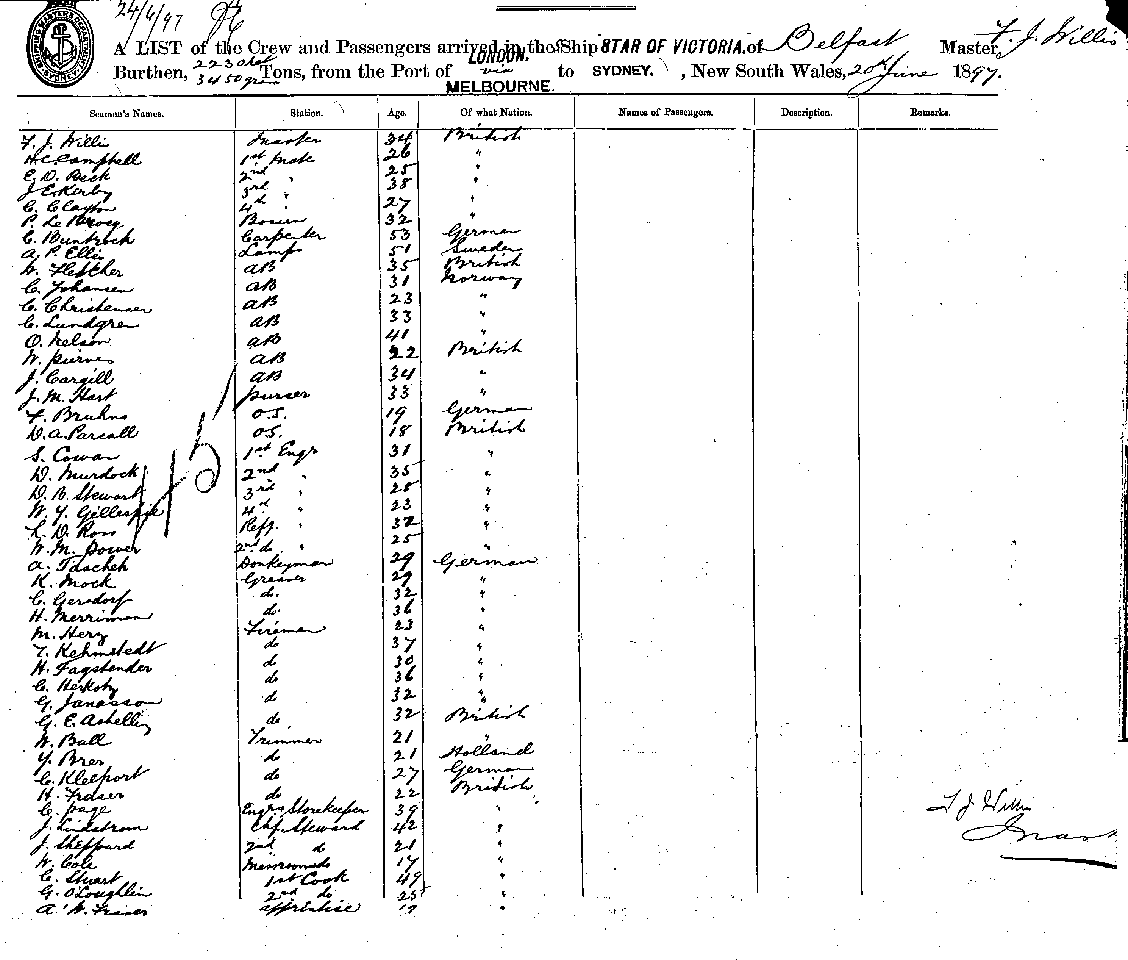 24/6/97 96
A LIST of the Crew and Passengers arrived in the Ship STAR OF VICTORIA. of Belfast Master, F. J. Willis
Burthen, 2230 net 3450 gross Tons, from the Port of LONDON. via MELBOURNE. to SYDNEY. , New South Wales, 20th June 1897.
Seamen's Names. Station. Age. Of what Nation. Names of Passengers. Description. Remarks.
F. J. Willis Master 34 British
H C Campbell 1st Mate 26 "
E. D. Beck 2nd " 25 "
J E Kerby 3rd " 38 "
C. Clayton 4th " 27 "
P. Le Bosun 32 "
C. Buntrock Carpenter 53 German
A. P. Ellis Lamps 51 Sweden
W. Fletcher AB 35 British
C. Johansen AB 31 Norway
C. Christensen AB 23 "
C. Lundgren AB 33 "
O. Nelson AB 41 "
W. Purves AB 22 British
J. Cargill AB 34 "
J. M. Hart purser 33 "
F. Bruhns O.S. 19 German
D. A. Parsall OS. 18 British
S. Cowan 1st Engr 31 "
D. Murdock 2nd " 35 "
D. B. Stewart 3rd " 28 "
W. Y. Gillespie 4th " 23 "
L. D. Ross Reff. " 32 "
W. M. Power 2nd do " 25 "
A. Taschek Donkeyman 29 German
K. Mock Greaser 29 "
C. Gersdorf do. 32 "
H. Merriman do 36 "
M. Herz Fireman 23 "
T. Kehmstedt do 37 "
H. Fagstender do 30 "
C. do 36 "
G. Janasson do 32 "
G. E. do 32 British
W. Ball Trimmer 21 "
Y. Bres do 21 Holland
C. Kleeport do 27 German
H. Fraser do 22 British
C. Page Engrs Storekeeper 39 "
J. Lindstrom Chf. Steward 42 "
J. Sheppard 2nd do 21 "
W. Cole Messroom do 17 "
C. Stuart 1st Cook 49 "
G. O'Loughlin 2nd do 25 "
A. W. Fraser apprentice 17 "
45
F J Willis
Mast